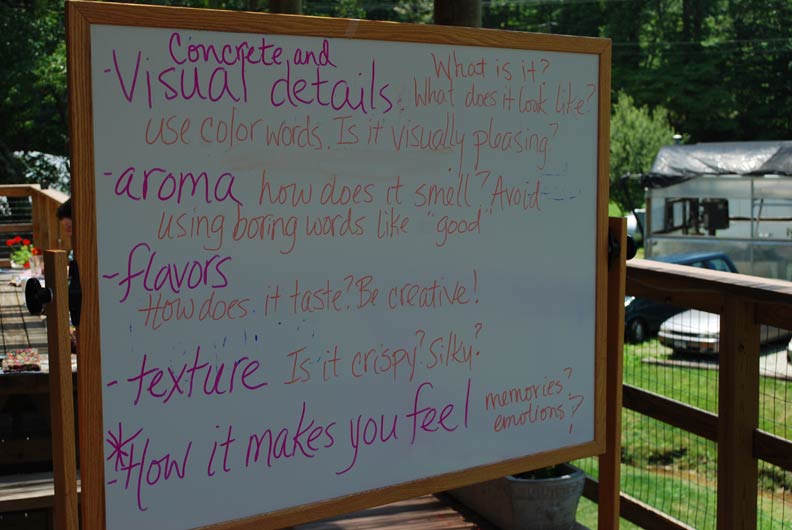 Concrete and
- Visual details. What is it?
What does it look like?
use color words. Is it visually pleasing?
- aroma how does it smell? Avoid
using boring words like "good"
- flavors
How does it taste? Be creative!
- texture Is it crispy? Silky?
* - How it makes you feel memories?
emotions?
!